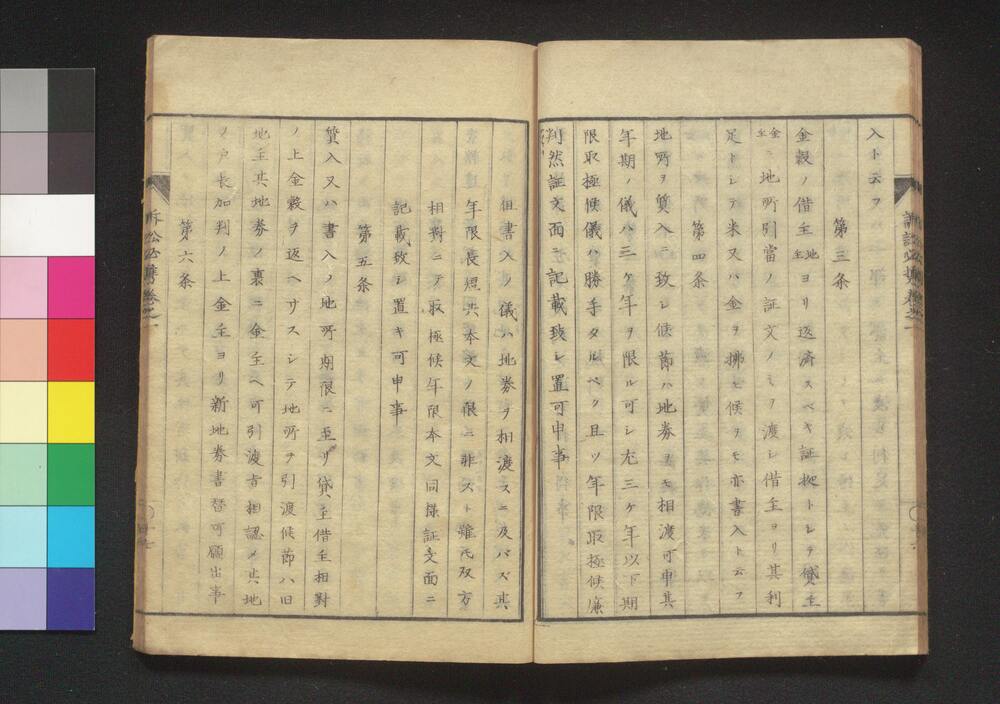 入ト云フ
第三条
金穀ノ借主地主ヨリ返済スベキ証拠トシテ貸主
金主ニ地所引当ノ証文ノミヲ渡シ借主ヨリ其利
足トシテ米又ハ金ヲ拂ヒ候ヲモ亦書入ト云フ
第四条
地所ヲ質入ニ致シ候節ハ地券ヲモ相渡可申其
年期ノ儀ハ三ケ年ヲ限ル可シ尤三ケ年以下期
限取極候儀ハ勝手タルベク且ツ年限取極候廉
判然証文面ニ記載致シ置可申事
但書入ノ儀ハ地券ヲ相渡スニ及バズ其
年限長短共本文ノ限ニ非スト雖氏双方
相對ニテ取極候年限本文同様証文面ニ
記載致シ置キ可申事
第五条
質入又ハ書入ノ地所期限ニ至リ貸主借主相對
ノ上金穀ヲ返ヘサスシテ地所ヲ引渡候節ハ旧
地主其地券ノ裏ニ金主ヘ可引渡旨相認メ其地
ノ戸長加判ノ上金主ヨリ新地券書替可願出事
第六条
訴訟必携巻之一